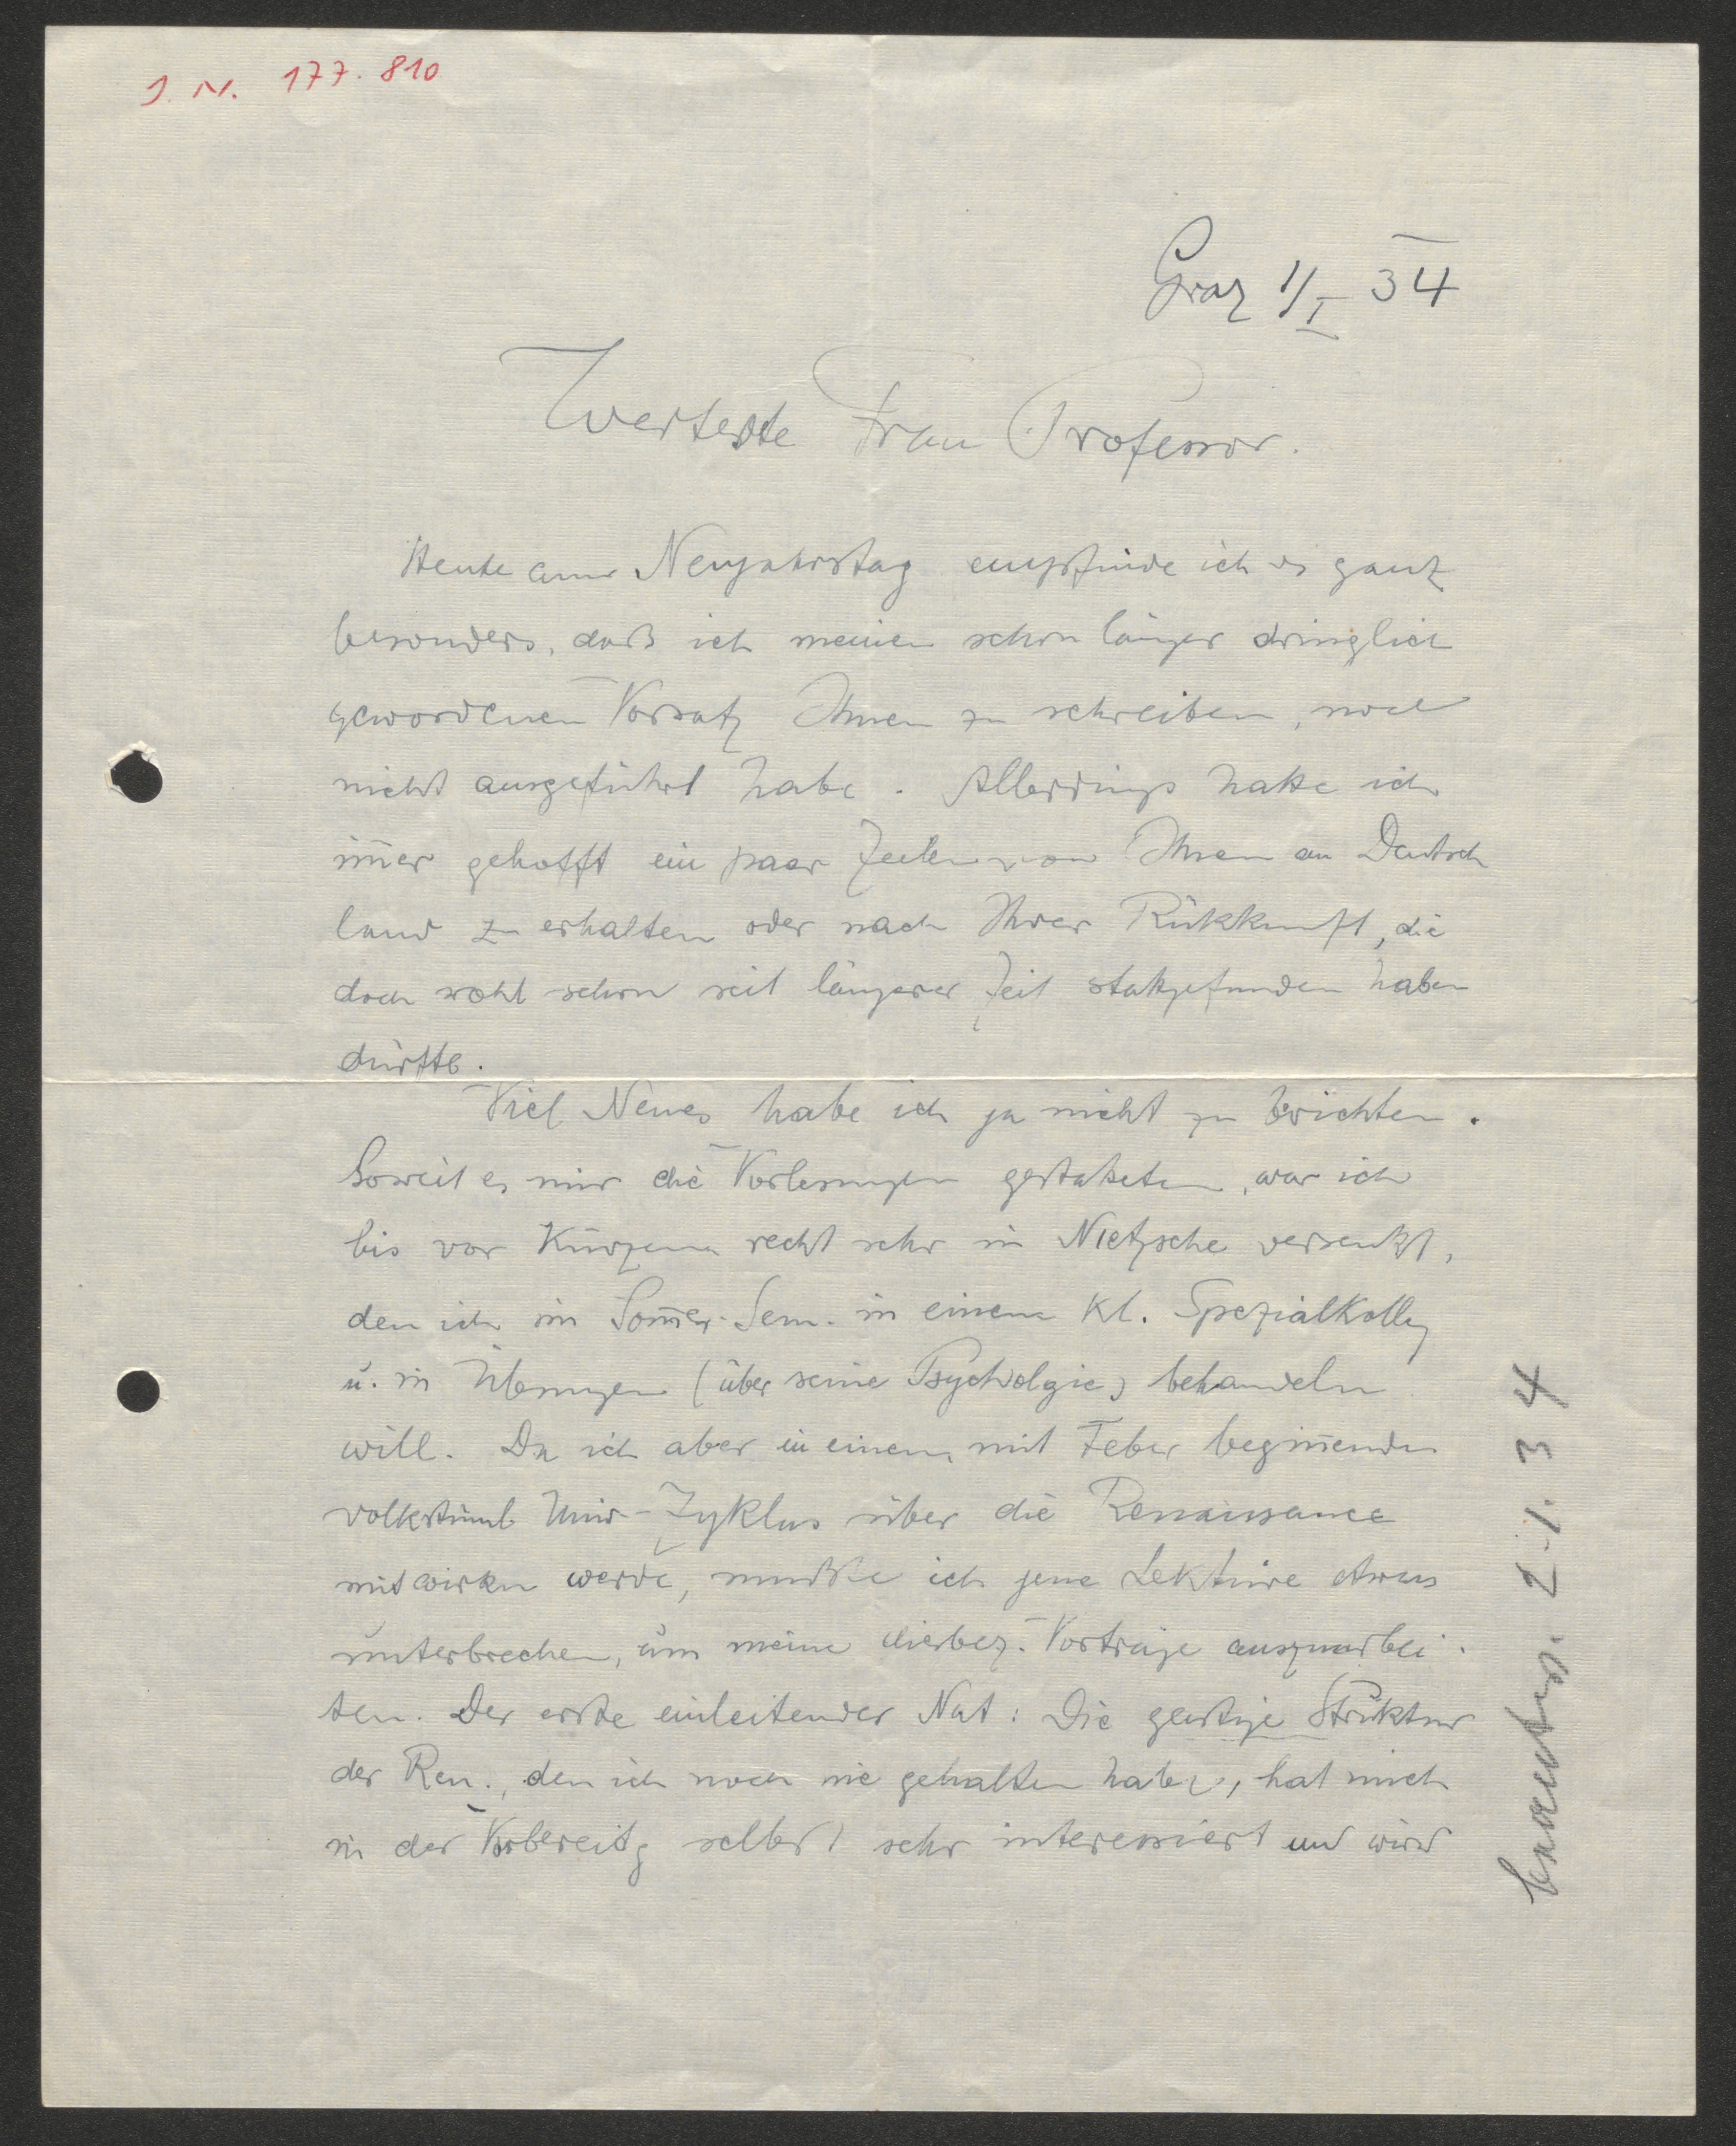 J. N. 177.810
Graz 1/I 34
Werteste Frau Professor.
Heute am Neujahrstag empfinde ich es ganz
besonders, daß ich meinen schon länger dringlich
gewordenen Vorsatz Ihnen zu schreiben, noch
nicht ausgeführt habe. Allerdings hatte ich
im̅er gehofft ein paar Zeilen von Ihnen an Deutsch
land zu erhalten oder nach Ihrer Rückkunft, die
doch wohl schon seit längerer Zeit stattgefunden haben
dürfte.
Viel Neues habe ich ja nicht zu berichten.
Soweit es mir die Vorlesungen gestatteten, war ich
bis vor Kurzem recht sehr in Nietzsche versenkt,
den ich im Som̅er-Sem. in einem kl. Spezialkolleg
u. in Übungen (über seine Psychologie) behandeln
will. Da ich aber in einem mit Feber begin̅enden
volkstüml Univ-Zyklus über die Renaissance
mitwirken werde, mußte ich jene Lektüre etwas
unterbrechen, um meine diesbez. Vorträge auszuarbei-
ten. Der erste einleitender Nat: Die geistige Struktur
der Ren., den ich noch nie gehalten habe, hat mich
in der Vorbereitg selbst sehr interessiert und wird
beantw. 2.1.34